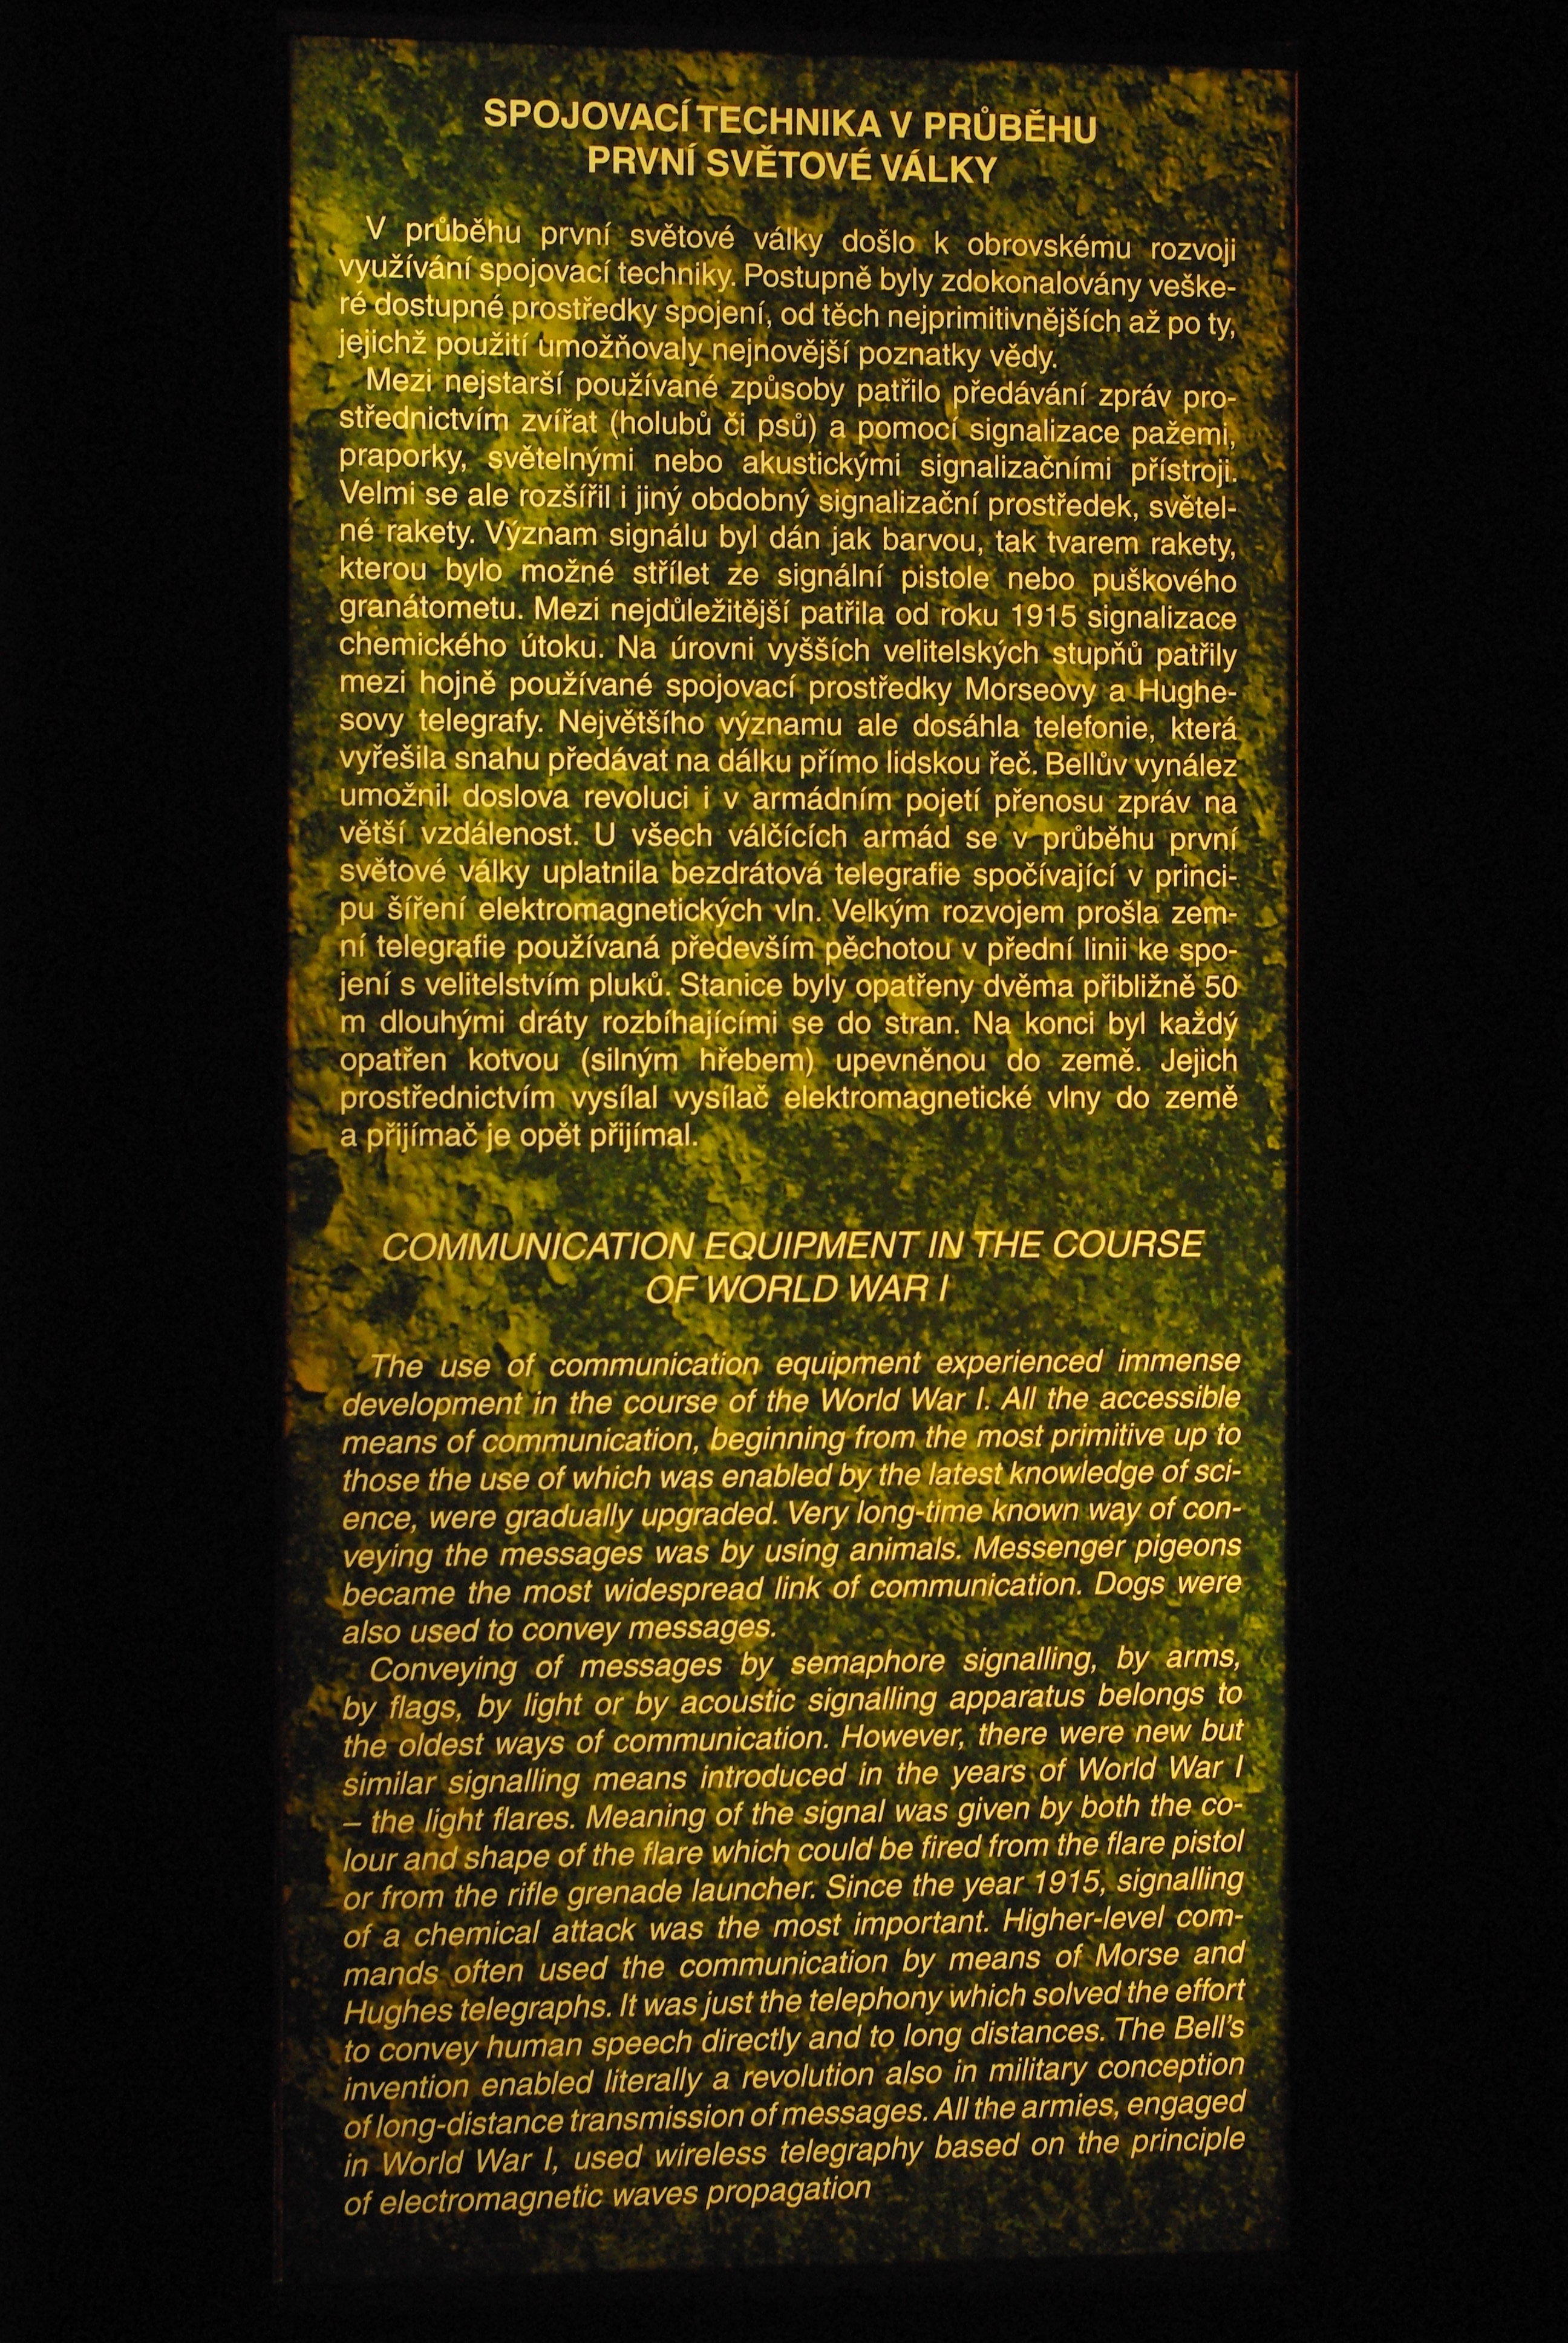 SPOJOVACÍ TECHNIKA V PRŮBĚHU
PRVNÍ SVĚTOVÉ VÁLKY
V průběhu první světové války došlo k obrovskému rozvoji
využívání spojovací techniky. Postupně byly zdokonalovány veške-
ré dostupné prostředky spojení, od těch nejprimitivnějších až po ty,
jejichž použití umožňovaly nejnovější poznatky vědy.
Mezi nejstarší používané způsoby patřilo předávání zpráv pro-
střednictvím zvířat (holubů či psů) a pomocí signalizace pažemi,
praporky, světelnými nebo akustickými signalizačními přístroji.
Velmi se ale rozšířil i jiný obdobný signalizační prostředek, světel-
né rakety. Význam signálu byl dán jak barvou, tak tvarem rakety,
kterou bylo možné střílet ze signální pistole nebo puškového
granátometu. Mezi nejdůležitější patřila od roku 1915 signalizace
chemického útoku. Na úrovni vyšších velitelských stupňů patřily
mezi hojně používané spojovací prostředky Morseovy a Hughe-
sovy telegrafy. Největšího významu ale dosáhla telefonie, která
vyřešila snahu předávat na dálku přímo lidskou řeč. Bellův vynález
umožnil doslova revoluci i v armádním pojetí přenosu zpráv na
větší vzdálenost. U všech válčících armád se v průběhu první
světové války uplatnila bezdrátová telegrafie spočívající v princi-
pu šíření elektromagnetických vln. Velkým rozvojem prošla zem-
ní telegrafie používaná především pěchotou v přední linii ke spo-
jení s velitelstvím pluků. Stanice byly opatřeny dvěma přibližně 50
m dlouhými dráty rozbíhajícími se do stran. Na konci byl každý
opatřen kotvou (silným hřebem) upevněnou do země. Jejich
prostřednictvím vysílal vysílač elektromagnetické vlny do země
a přijímač je opět přijímal.
COMMUNICATION EQUIPMENT IN THE COURSE
OF WORLD WAR I
The use of communication equipment experienced immense
development in the course of the World War I. All the accessible
means of communication, beginning from the most primitive up to
those the use of which was enabled by the latest knowledge of sci-
ence, were gradually upgraded. Very long-time known way of con-
veying the messages was by using animals. Messenger pigeons
became the most widespread link of communication. Dogs were
also used to convey messages.
Conveying of messages by semaphore signalling, by arms,
by flags, by light or by acoustic signalling apparatus belongs to
the oldest ways of communication. However, there were new but
similar signalling means introduced in the years of World War I
– the light flares. Meaning of the signal was given by both the co-
lour and shape of the flare which could be fired from the flare pistol
or from the rifle grenade launcher. Since the year 1915, signalling
of a chemical attack was the most important. Higher-level com-
mands often used the communication by means of Morse and
Hughes telegraphs. It was just the telephony which solved the effort
to convey human speech directly and to long distances. The Bell's
invention enabled literally a revolution also in military conception
of long-distance transmission of messages. All the armies, engaged
in World War I, used wireless telegraphy based on the principle
of electromagnetic waves propagation